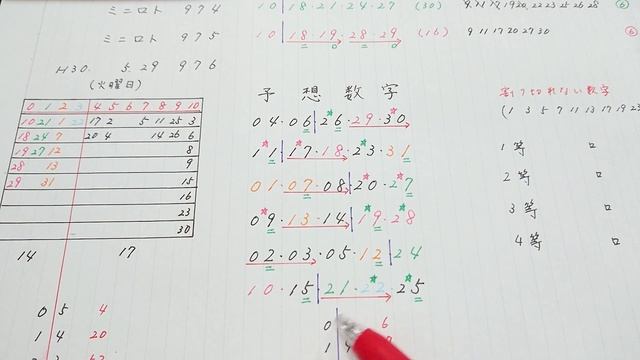 ミニロト 974
10 18・21・24・27 (30)
20.22 23 25 26 28 6
ミニロト 975
10 18・19・28・29 (16)
9 11 17 19 20 27 30 6
H30. 5. 29 976
(火曜日)
予想数字
割り切れない数字
0 1 2 3 4 5 6 7 8 9 10
(1 3 5 7 11 13 17 19 23
10 21 1 22 17 2 5 11 25 3
04・06 26・29・30
18 24 7 20 4 14 26 6
11・17・18・23・31
1等 ロ
19 27 12 8
28 13 9
01・07・08・20・27
2等 ロ
29 31 15
16
09・13・14・19・28
3等 ロ
23
30
02・03・05・12 24
4等 ロ
14 17
10・15・21・22・25
0 5 4
0 6
1 4 20
1 4